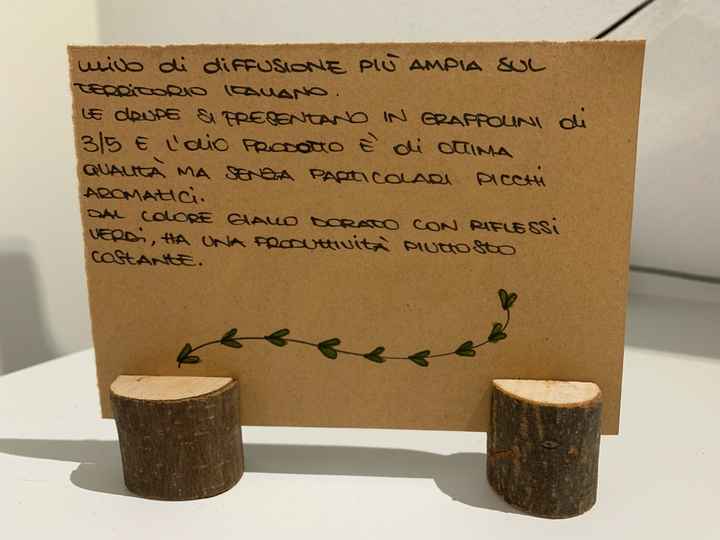 ULIVO di DIFFUSIONE PIÙ AMPIA SUL
TERRITORIO ITALIANO.
LE dRUPE SI PRESENTANO IN GRAPPOLINI di
3/5 E L'OLIO PRODOTTO È di OTTIMA
QUALITÀ MA SENZA PARTICOLARI PICCHI
AROMATICI.
DAL COLORE GIALLO DORATO CON RIFLESSI
VERDI, HA UNA PRODUTTIVITÀ PIUTTOSTO
COSTANTE.